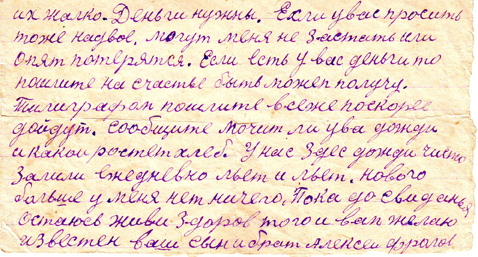 их жалко. Деньги нужны. Ехли у вас просить
тоже надвое, могут меня не застать или
опят потерятся. Если есть у вас деньги то
пошлите на счастье быть можеп получу.
Тилиграфап пошлите все же поскорее
дойдут. Сообщите мочит ли ува дожди
и какои ростет хлеб. У нас здес дожди чисто
залили ежедневно льет и льет. нового
больше у меня нет ничего, Пока до свиданья
остаюсь живи здоров того и вап желаю
известен ваш сын и брат Алексеи Фролов